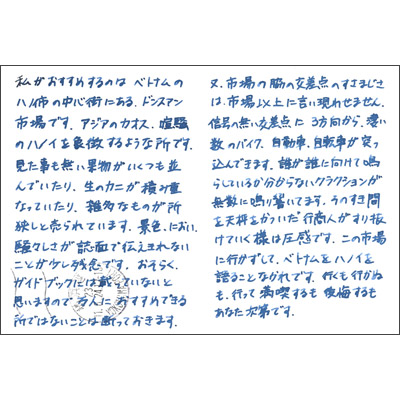 私がおすすめするのは ベトナムの
ハノイ市の中心街にある、ドンスアン
市場です。アジアのカオス、喧騒
のハノイを象徴するような所です。
見た事も無い果物がいくつも並
んでいたり、生のカニが積み重
なっていたり、雑多なものが所
狭しと売られています。景色、におい、
騒々しさが誌面で伝えきれない
ことが少し残念です。おそらく、
ガイドブックには載っていないと
思いますので 万人に おすすめできる
所ではないことは断っておきます。
又、市場の脇の交差点のすさまじさ
は、市場以上に言い現わせません。
信号の無い交差点に 3方向から、凄い
数のバイク、自動車、自転車が突っ
込んできます。誰が誰に向けて鳴
らしているか分からないクラクションが
無数に鳴り響いてます。そのすき間
を天秤をかついだ行商人がすり抜
けていく様は圧感です。この市場
に行かずして、ベトナムをハノイを
語ることなかれです。行くも行かぬ
も、行って 満喫するも 後悔するも
あなた次第です。